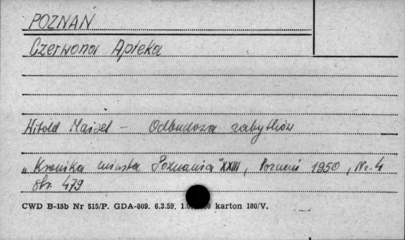 POZNAŃ
Czerwona Apteka
Witold Maisel — Odbudowa zabytków
„Kronika miasta Poznania" XXIII, Poznań 1950, Nr. 4
str. 479
CWD B-15b Nr 515/P. GDA-809. 6.3.59. karton 180/V.